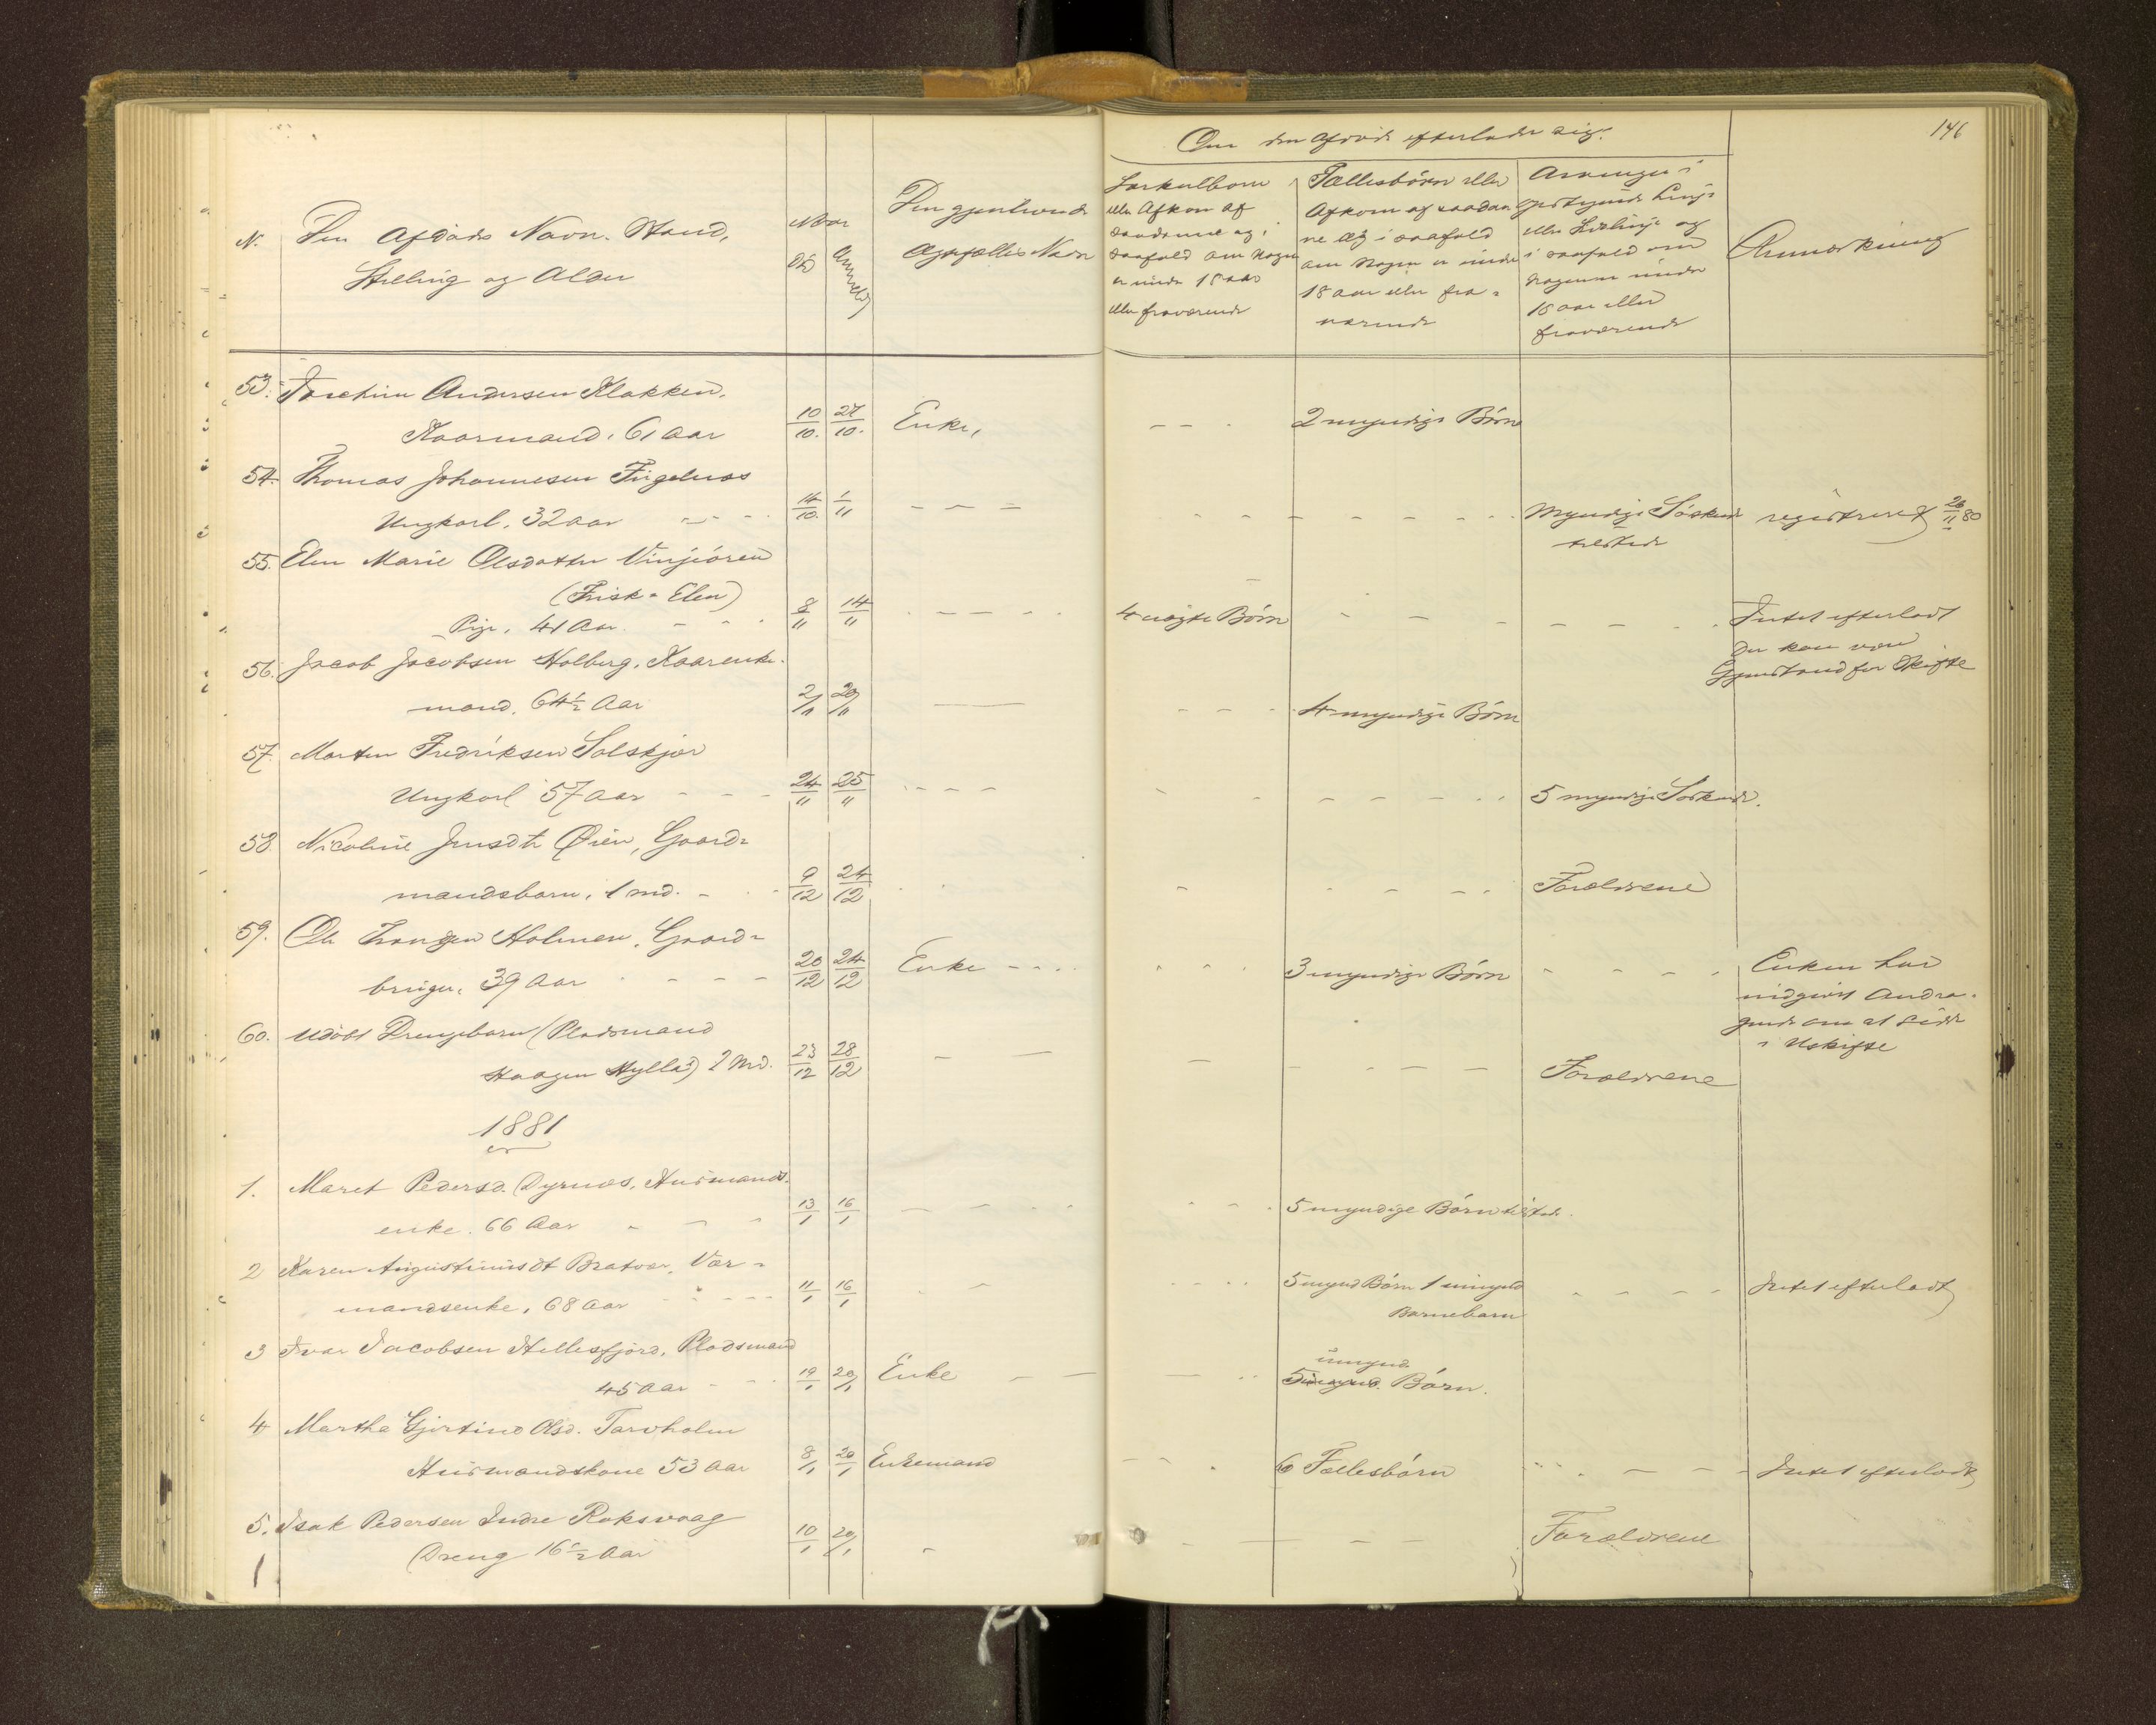 146
Om den afdøde efterlader sig:
N.
Den Afdødes Navn. Stand,
Stilling og Alder
Naar
Død
Anmeldt
Den gjenlevende
Ægtefælles Navn
Særkulborn
eller Afkom af
saadanne og i
saafald om Nogen
er under 18 aar
eller fraværende
Fællesbørn eller
Afkom af saadan
ne og i saafald
om Nogen er under
18 aar eller fra-
værende
Arvinger i
opstigende Linje
eller Sidelinje og
i saafald om
nogen under
18 aar eller
fraværende
Anmærkning
53. Joachim Andersen Klakken,
Kaarmand, 61 Aar 10/10. 27/10. Enke, 2 myndige Børn
54. Thomas Johannesen Fugelnæs
Ungkarl, 32 aar 14/10. 1/11 Myndige Søskende registreret 26/11 80
tilstede
55. Elen Marie Olsdatter Vinjeøren
(Frisk-Elen)
Pige, 41 Aar 8/11 14/11 4 uægte Børn Intet efterladt
Der kan være
Gjenstand for Skifte
56. Jacob Jacobsen Holberg, Kaarenke-
mand, 64½ Aar 2/11 20/11 4 myndige Børn
57. Morten Fredriksen Solskjær
Ungkarl 57 Aar 24/11 25/11 5 myndige Søskende.
58. Nicoline Jensdt Øien, Gaard-
mandsbarn, 1 md. 9/12 24/12 Forældrene
59. Ole Holmen, Gaard-
bruger, 39 Aar 20/12 24/12 Enke 3 myndige Børn Enken har
indgivet Andra-
gende om at sidde
i Uskifte
60. Udøbt Drengebarn (Pladsmand
Haagen Hylla) 2 Md. 23/12 28/12 Forældrene
1881
1. Maret Pedersd. Dyrnæs, Husmands-
enke. 66 Aar 13/1 16/1 5 myndige Børn tilstede.
2 Karen Augustinusdt Bratvær, Vær-
mandsenke, 68 Aar 11/1 16/1 5 mynd Børn 1 umynd Intet efterladt
Barnebarn
3 Ivar Jacobsen Hellesfjord, Pladsmand
umynd.
45 Aar 19/1 20/1 Enke 5 Børn.
4 Martha Gjertine Olsd. Tarvholm
Husmandskone 53 Aar 8/1 20/1 Enkemand 6 Fællesbørn Intet efterladt
5. Isak Pedersen Indre Roksvaag
Dreng 16½ Aar 10/1 20/1 Forældrene